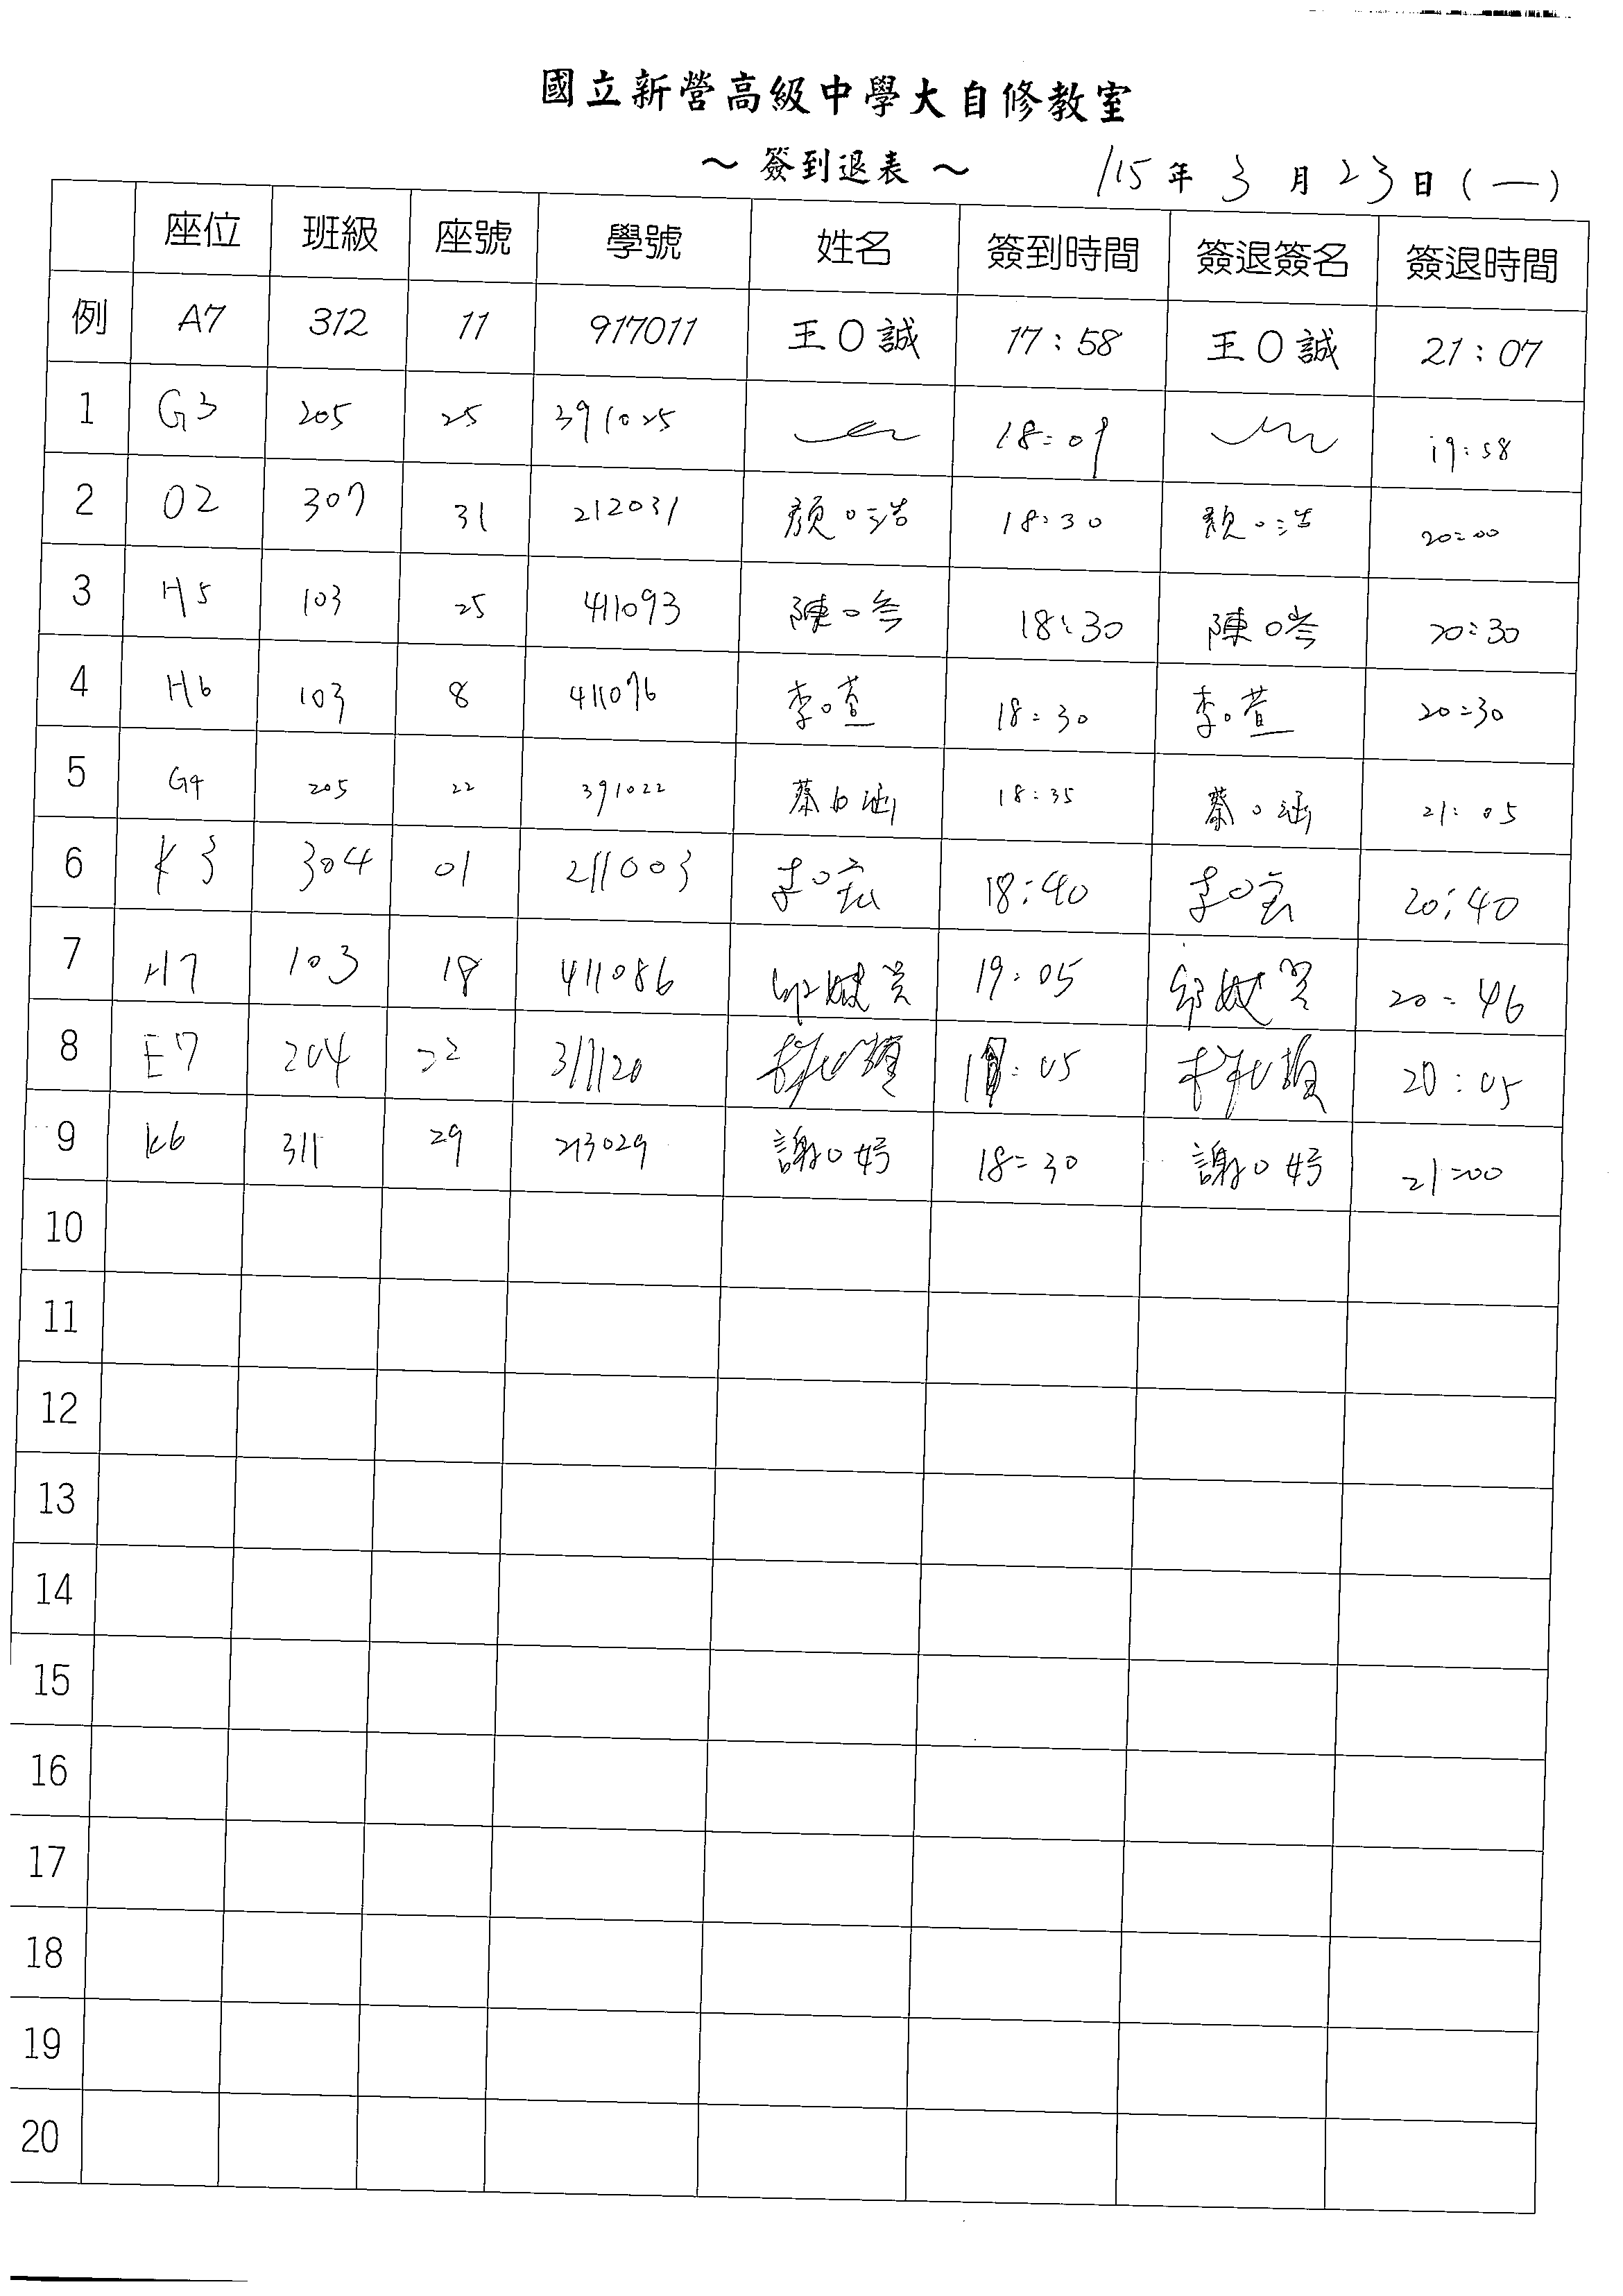 國立新營高級中學大自修教室
～ 簽到退表 ～ 115 年 3 月 23 日 (一)
座位 班級 座號 學號 姓名 簽到時間 簽退簽名 簽退時間
例 A7 312 11 917011 王O誠 17:58 王O誠 21:07
1 G3 205 25 391025 18:09 19:58
2 O2 307 31 212031 顏O浩 18:30 顏O浩 20:00
3 H5 103 25 411093 陳O岑 18:30 陳O岑 20:30
4 H6 103 8 411076 李O萱 18:30 李O萱 20:30
5 G4 205 22 391022 蔡O涵 18:35 蔡O涵 21:05
6 K3 304 01 211003 李O宏 18:40 李O宏 20:40
7 H7 103 18 411086 19:05 20:46
8 E7 204 22 311120 :05 20:05
9 K6 311 29 213029 謝O妤 18:30 謝O妤 21:00
10
11
12
13
14
15
16
17
18
19
20